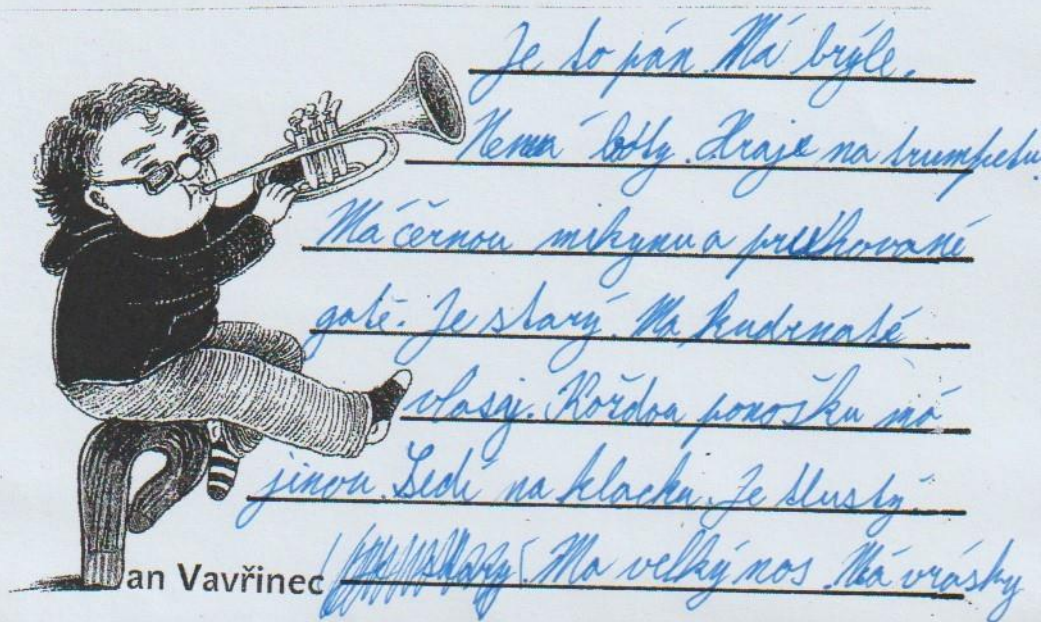 Je to pán. Má brýle.
Nemá boty. Hraje na trumpetu.
Má černou mikynu a pruhované
gatě. Je starý. Ma kudrnaté
vlasy. Každou ponožku má
jinou. Sedí na klacku. Je tlustý.
Pan Vavřinec Ma velký nos. Má vrásky